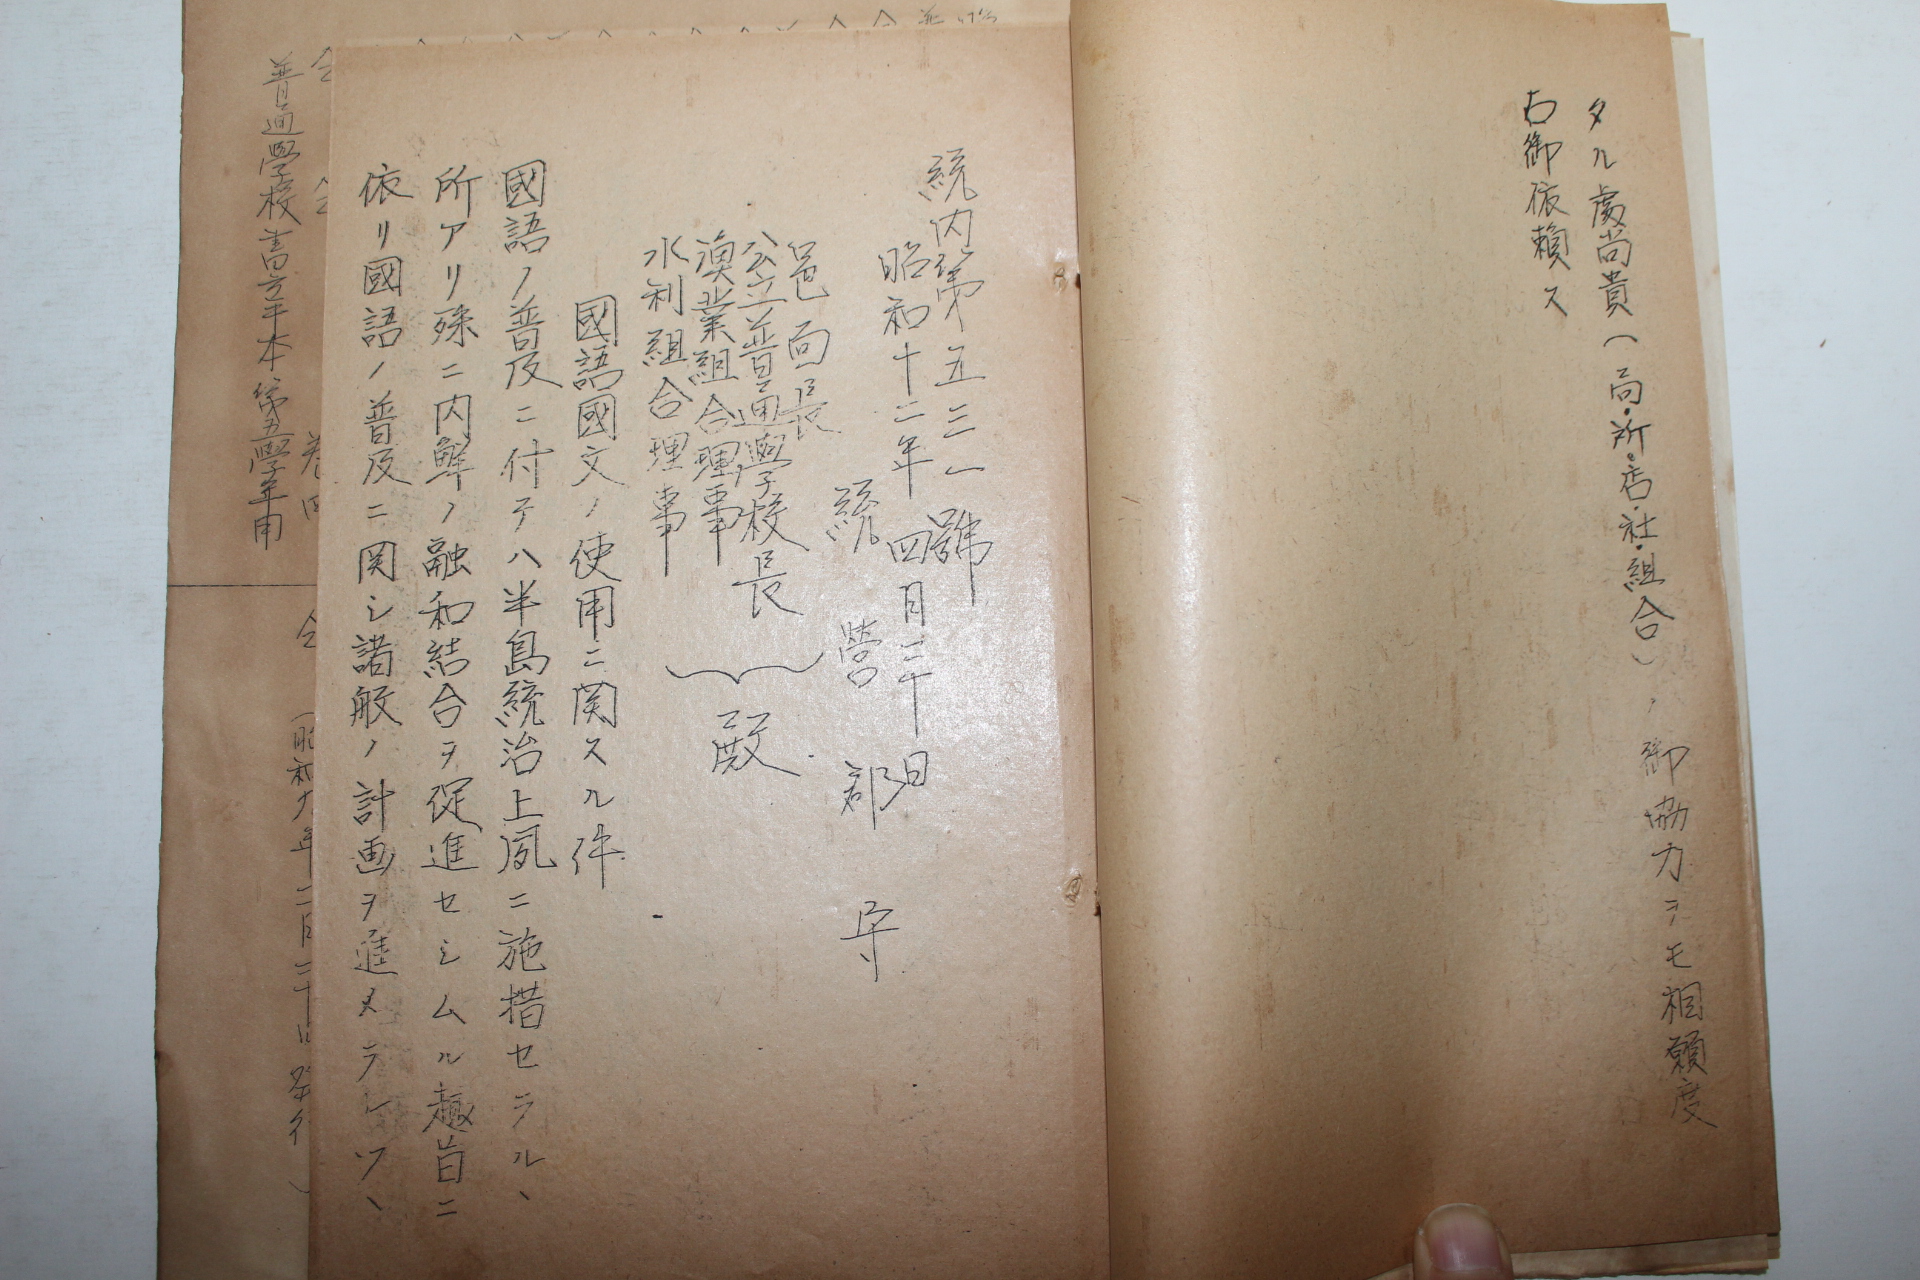 タル處尚貴(局・所・店・社・組合)ノ御協力ヲモ相願度
右御依賴ス
統内第五三一號
昭和十二年四月三十日
統營郡守
邑面長
公立普通學校長
漁業組合理事
水利組合理事
殿
國語國文ノ使用ニ関スル件
國語ノ普及ニ付テハ半島統治上夙ニ施措セラルヽ
所アリ殊ニ内鮮ノ融和結合ヲ促進セシムル趣旨ニ
依リ國語ノ普及ニ関シ諸般ノ計画ヲ進メラレツヽ
仝 仝 卷四
普通學校書方手本第五學年用
仝 (昭和九年二月二十日發行)